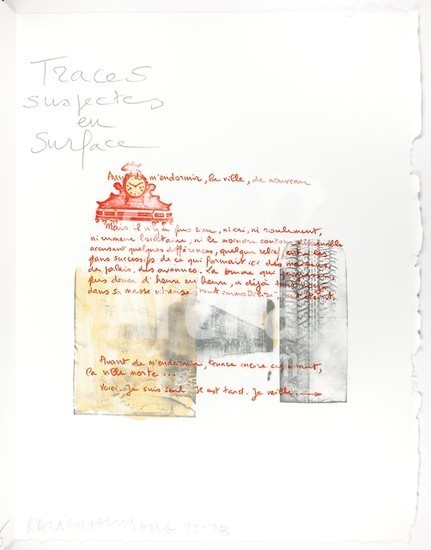 Traces
suspectes
en
surface
Avant de m'endormir, la ville, de nouveau
"Mais il n'y a plus rien, ni cri, ni roulement,
ni rumeur lointaine; ni le moindre contour
accusant quelques différences, quelque relief, entre les
plans successifs de ce qui formait ici des maisons,
des palais, des avenues. La brume qui
plus dense d'heure en heure, a déjà tout
dans sa masse vitreuse, tout
Avant de m'endormir, tenace encore cependant,
la ville morte ...
Voici. Je suis seul. Il est tard. Je veille.
RAUSCHENBERG 72-78